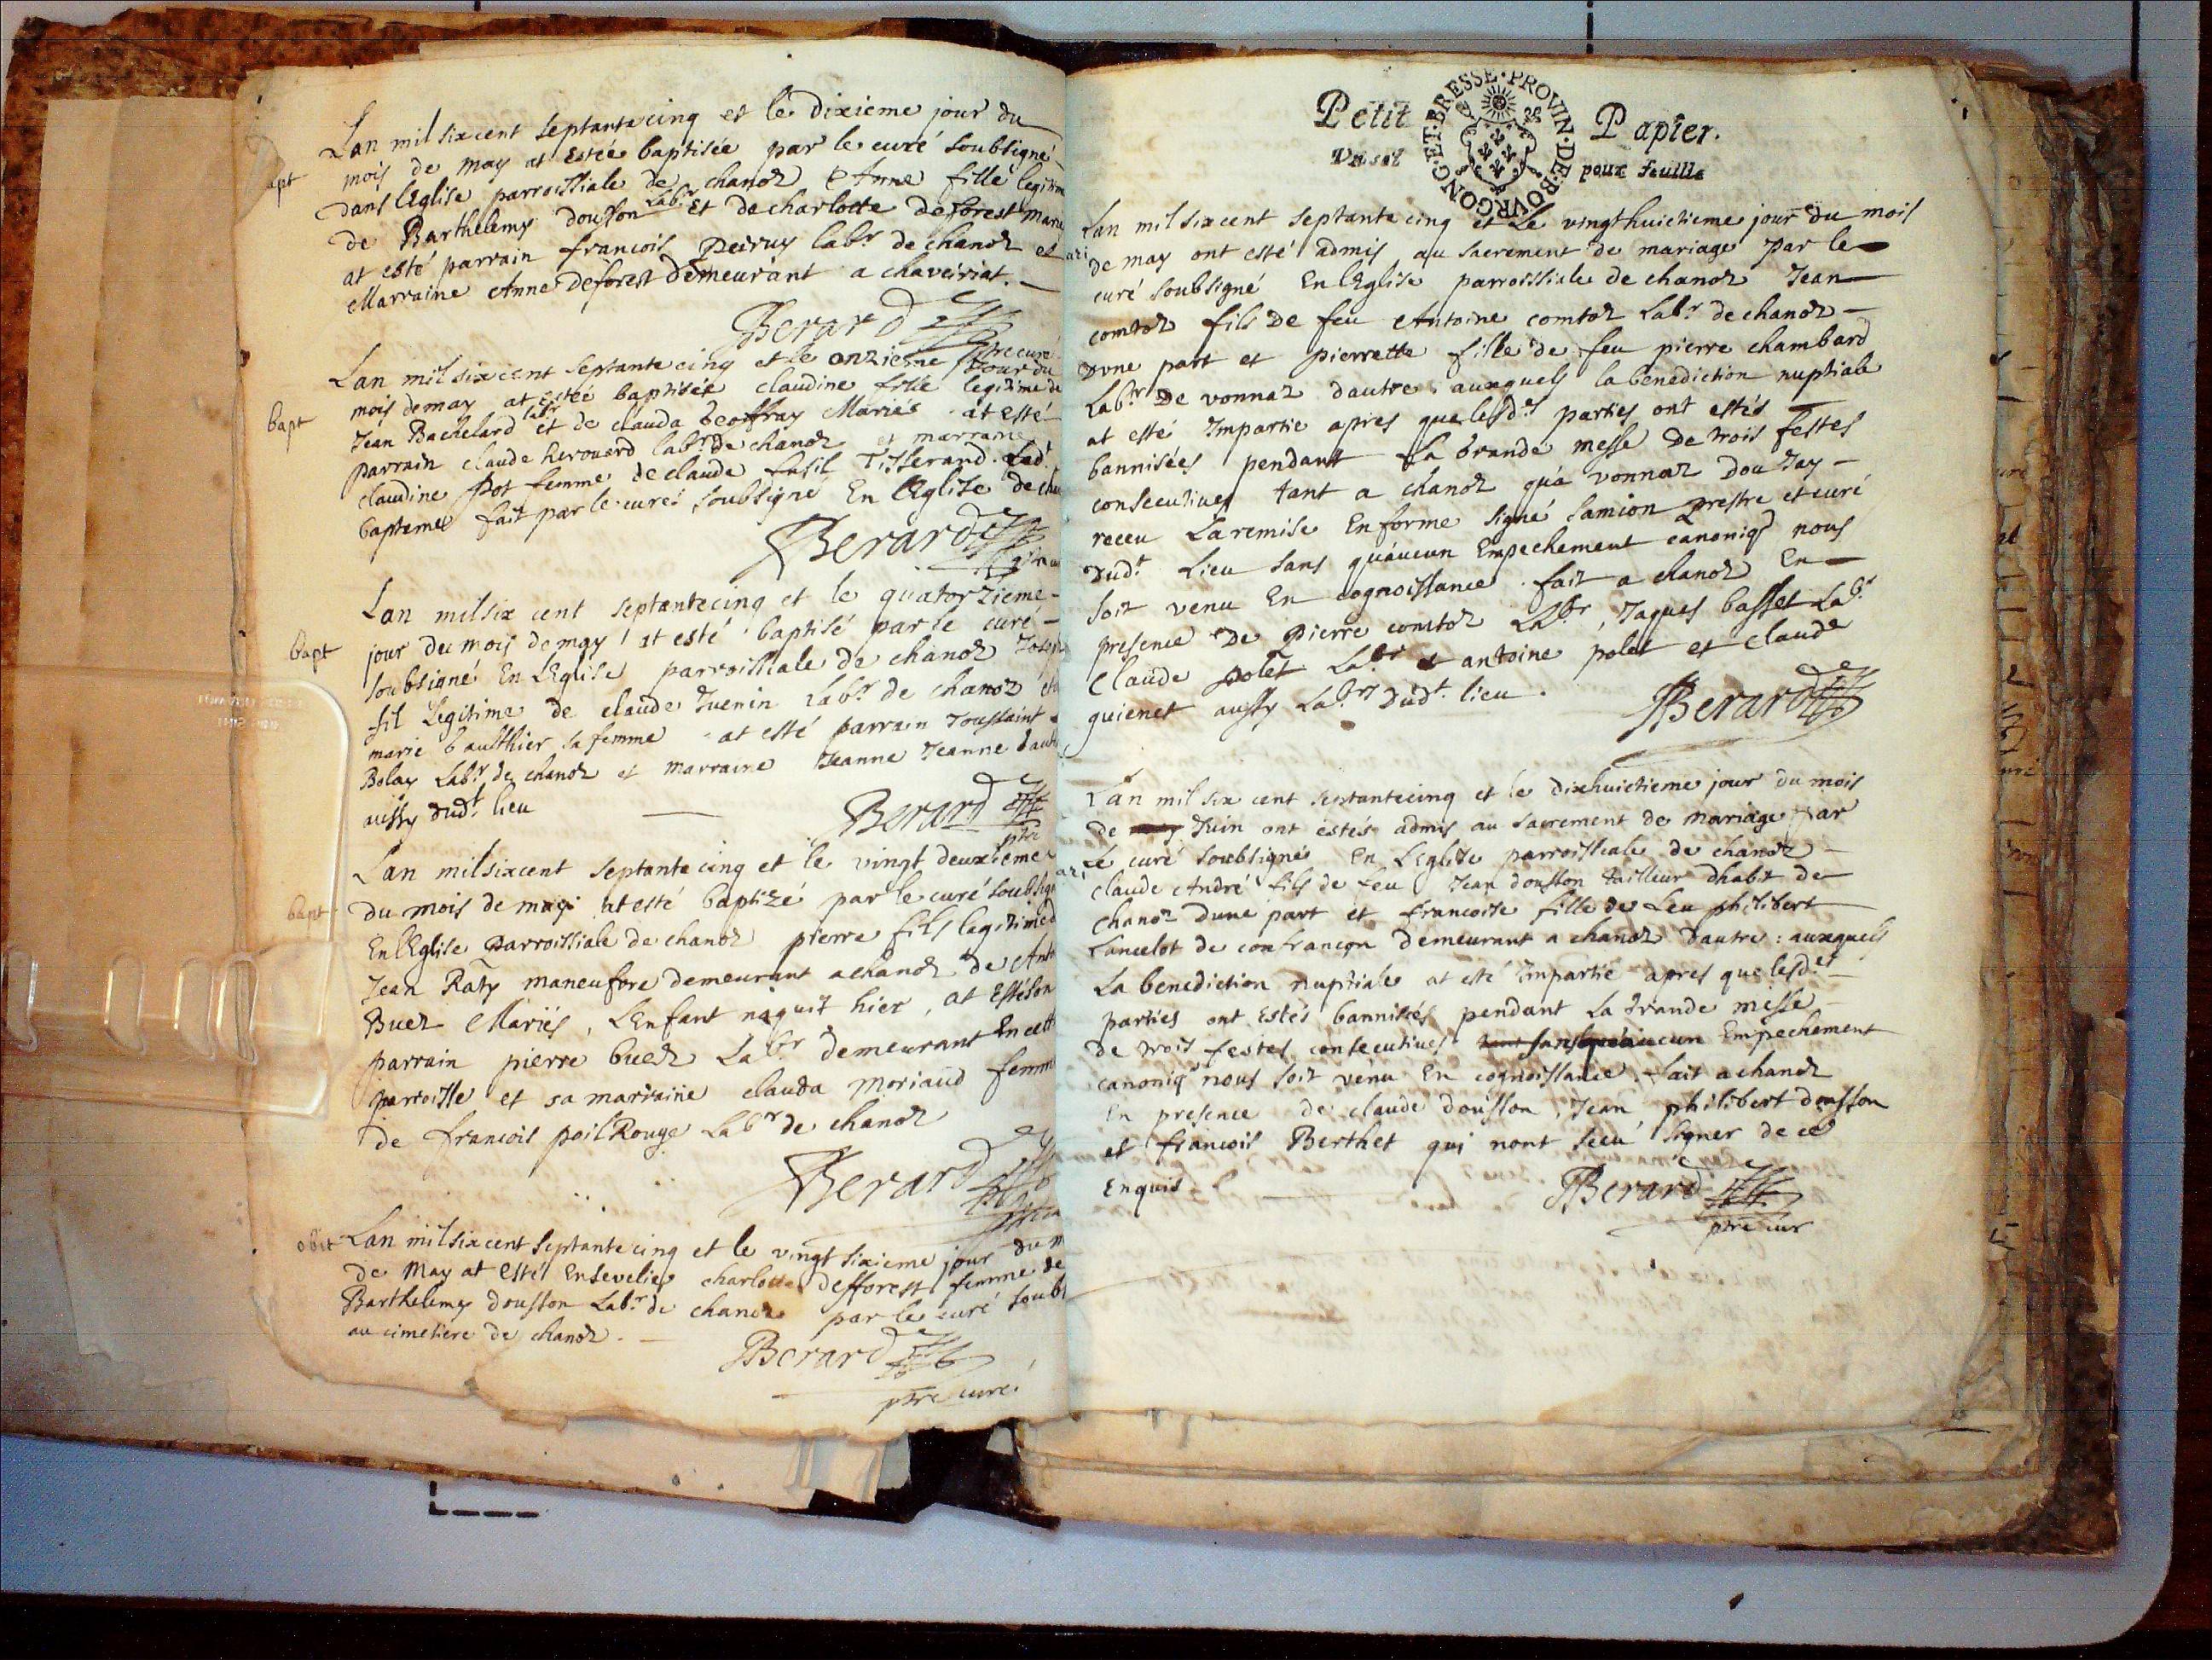 Lan mil sixcent septante cinq et le dixieme jour du
bapt
mois de may at estée baptisée par le curé soubsigné
dans lEglise parroissiale de chanoz Anne fille legitime
de Barthelemy dousson labr et de charlotte deforest marié
at esté parrain francois peiruy labr de chanoz et
Marraine Anne deforest demeurant a chaveiriat.
Berard
ptre curé
Lan mil sixcent septante cinq et le onzieme jour du
bapt
mois de may at estée baptisée claudine fille legitime de
Jean Bachelard labr et de clauda beoffray Mariés at esté
parrain claude herouard labr de chanoz et marraine
claudine pot femme de claude fusil Tisserand. Led.
bapteme fait par le curé soubsigné En lEglise de cha
Berard
Lan mil six cent septante cinq et le quatorzieme
bapt
jour du mois de may at esté baptisé par le curé
soubsigné En LEglise parroissiale de chanoz Joseph
fil Legitime de claude Juenin Labr de chanoz et
marie baulthier sa femme at esté parrain Toussaint
Bolay Labr de chanoz et marraine Jeanne Jeanne
aussy dudt. lieu
Berard
ptre
Lan mil sixcent septante cinq et le vingt deuxieme
bapt
du mois de may at esté baptizé par le curé soubsig
En lEglise parroissiale de chanoz pierre fils legitime d
Jean Raty maneufvre demeurant a chanoz de Ant
Buez Mariés, LEnfant naquit hier, at Esté son
parrain pierre buez Labr demeurant En cett
parroisse et sa marraine clauda moriaud femm
de francois poil Rouge Labr de chanoz
Berard
obit
Lan mil sixcent septante cinq et le vingt sixieme jour du m
de May at Esté Ensevelie charlotte defforest femme de
Barthelemy dousson Labr de chanoz par le curé soubs
au cimetiere de chanoz.
Berard
ptre curé.
Petit Papier.
pour feuille
PROVIN·DE·BOVRGONG·ET·BRESSE·
Lan mil sixcent septante cinq et Le vingthuictieme jour du mois
ari
de may ont esté admis au sacrement de mariage par le
curé soubsigné En lEglise parroissiale de chanoz Jean
comtoz fils de feu Antoine comtoz Labr de chanoz
dvne part et pierrette fille de feu pierre chambard
Labr de vonnaz dautre: auxquels la benediction nuptiale
at esté Impartie apres que lesdes parties ont estés
bannisées pendant La Grande messe de trois festes
consecutives tant a chanoz qua vonnaz dou Jay
receu La remise En forme signé Samion prestre et curé
dudt. Lieu sans quaucun Empechement canoniq nous
soit venu En cognoissance. fait a chanoz En
presence de Pierre comtoz Labr, Jaques basset Labr
Claude polet Labr et antoine polet et claude
guienet aussy Labrs dudt. lieu.
Berard
Lan mil six cent septante cinq et le dixhuictieme jour du mois
de may Juin ont estés admis au sacrement de mariage par
ari
Le curé soubsigné En LEglise parroissiale de chanoz
claude André fils de feu Jean dousson tailleur dhabit de
chanoz dune part et francoise fille de feu philibert
Lancelot de confrançon demeurant a chanoz dautre: auxquels
La benediction nuptiale at esté Impartie apres que lesdes
parties ont Estés bannisés pendant La Grande messe
de trois festes consecutives tant sans quaucun Empechement
canoniq nous soit venu En cognoissance. fait a chanoz
En presence de claude dousson, Jean philibert dousson
et francois Berthet qui nont sceu signer de ce
Enquis
Berard
ptre cur